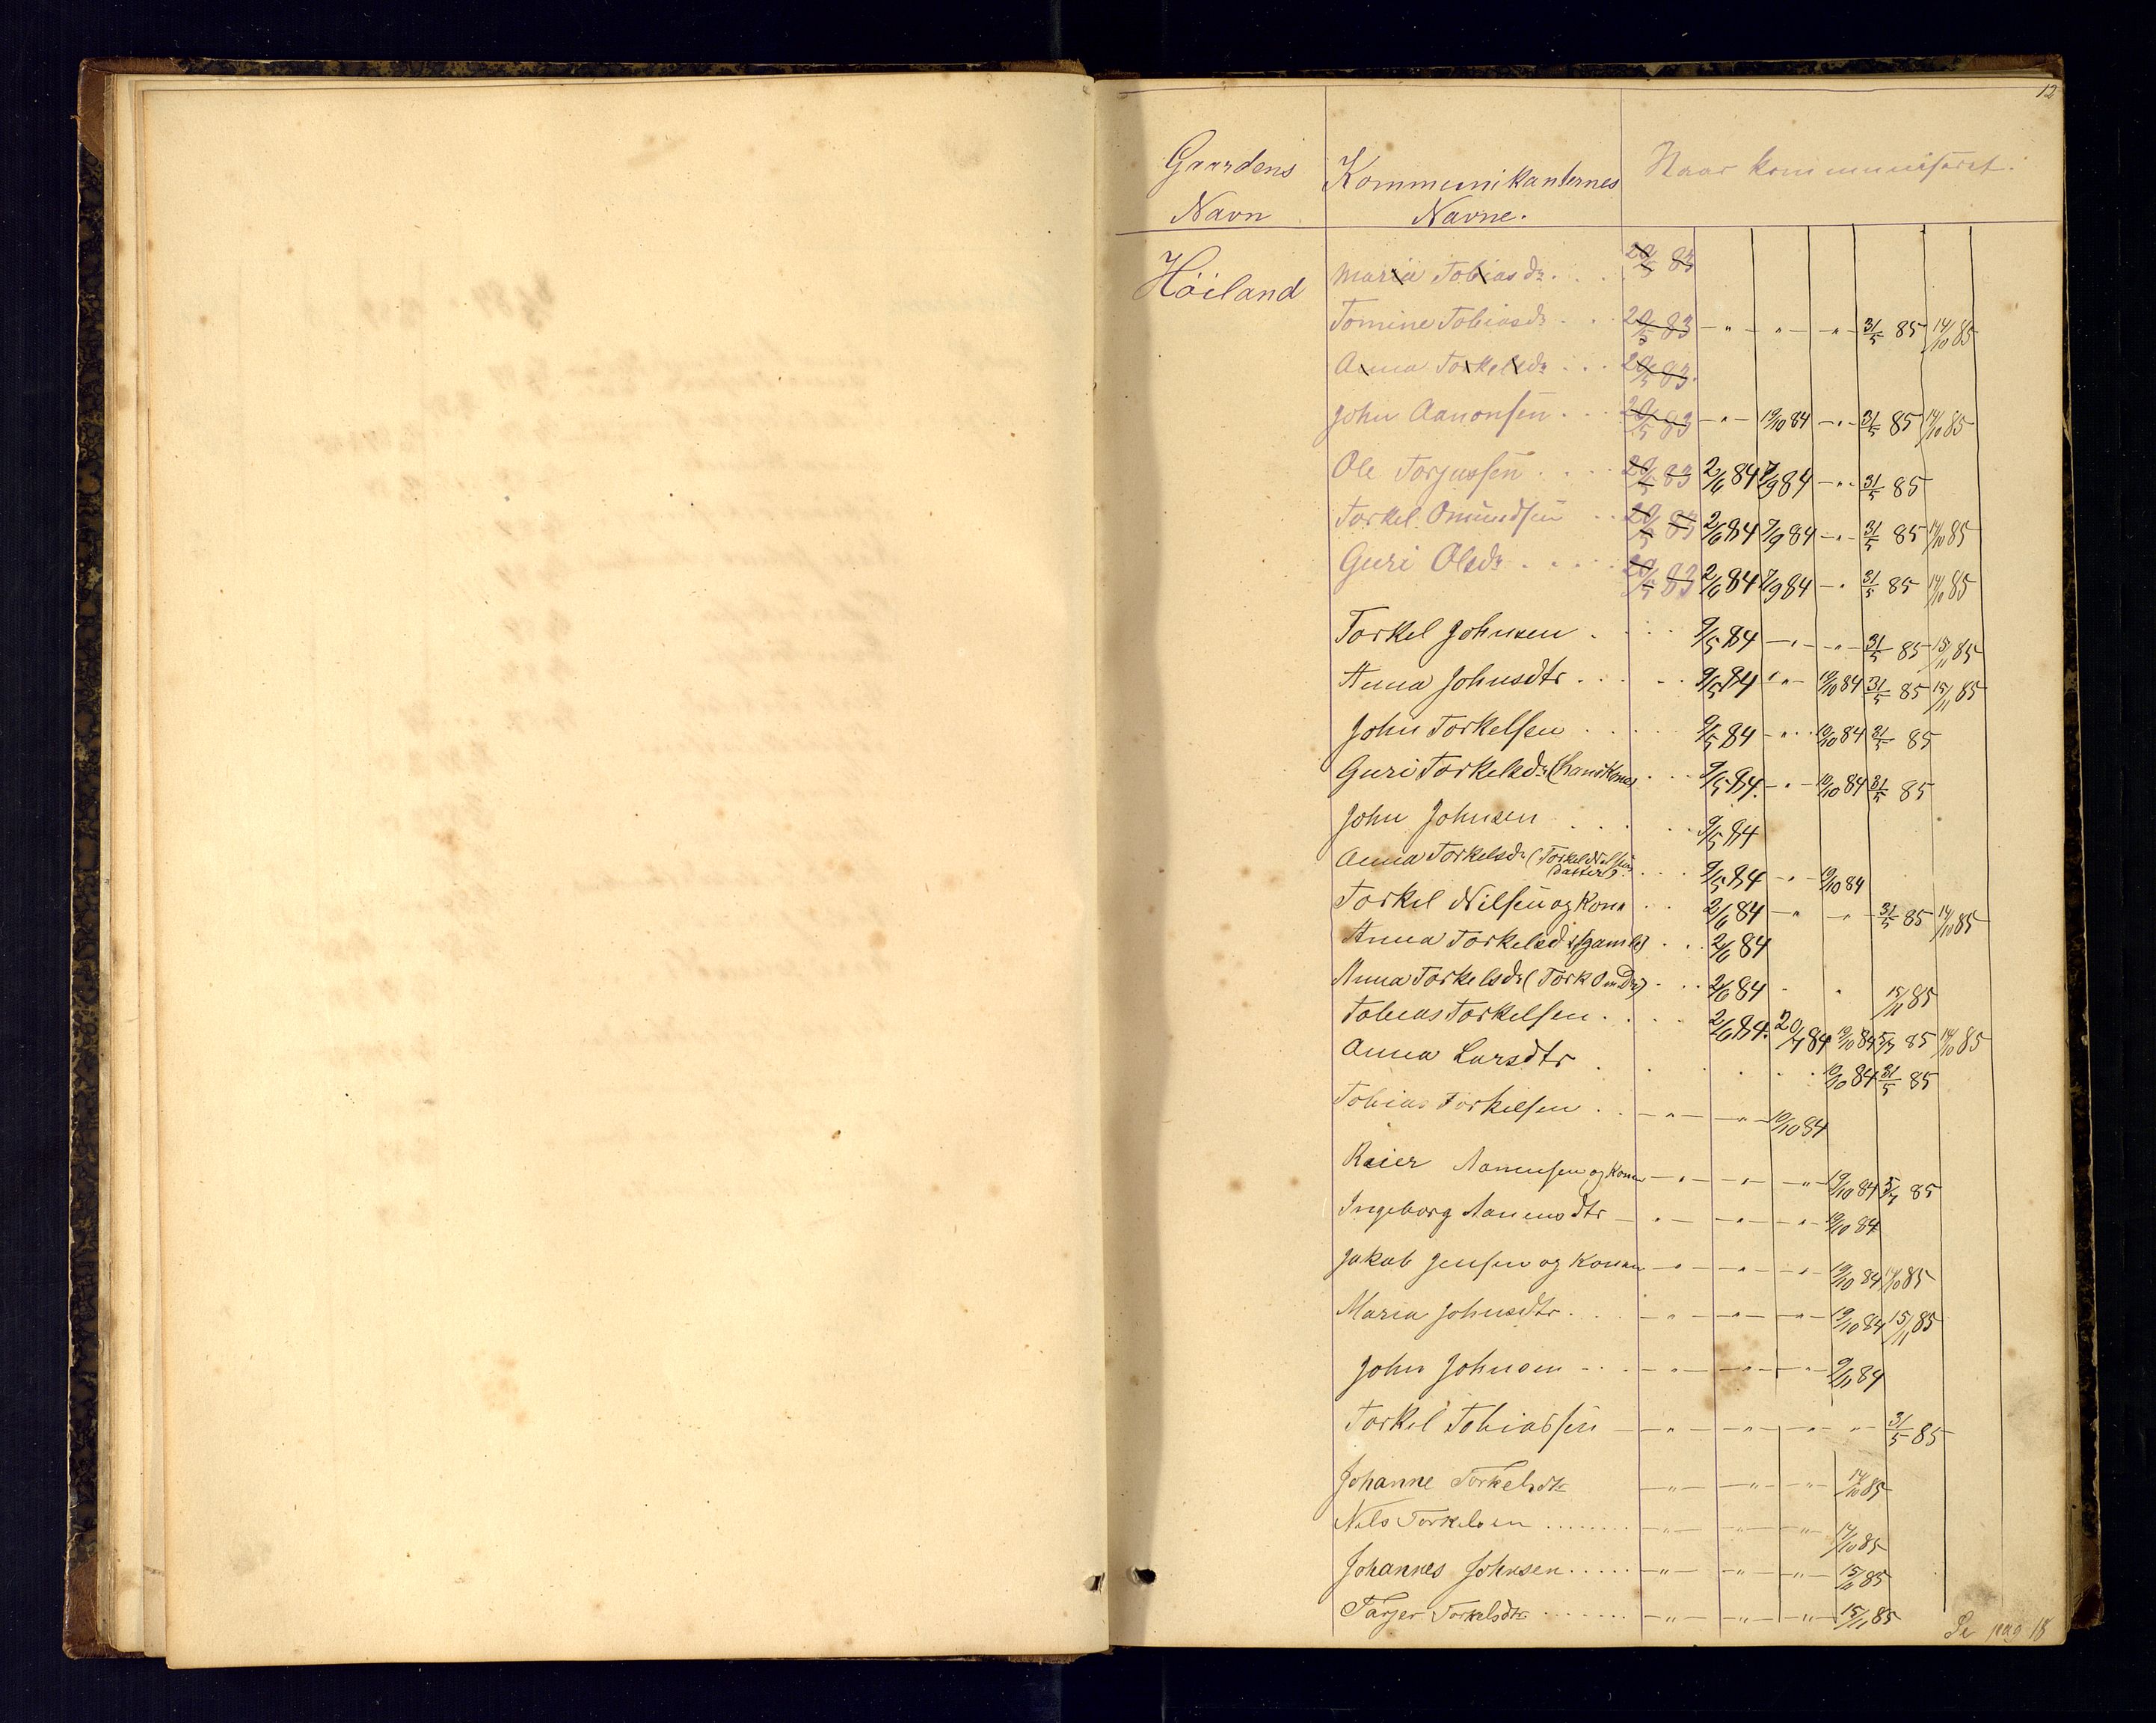 12
Gaardens Kommunikanternes Naar kommuniseret.
Navn Navne.
Höiland Maria Tobiasdr. . . 20/5 83
Tomine Tobiasdr . . 20/5 83 — " — " — " — 31/5 85 14/10 85
Anna Torkelsdr . . . 20/5 83.
John Aanonsen . . . 20/5 83 — " — 19/10 84 — " — 31/5 85 14/10 85
Ole Torjussen . . . . 20/5 83 2/6 84 7/9 84 — " . 31/5 85
Torkel Omundsen . . 20/5 83 2/6 84 7/9 84 — " — 31/5 85 14/10 85
Guri Olsdr . . . . . 20/5 83 2/6 84 7/9 84 — " 31/5 85 14/10 85
Torkel Johnsen . . . . 9/5 84 — " — " — 31/5 85 15/11 85
Anna Johnsdtr . . . . . 9/5 84 " " — 19/10 84 31/5 85 15/11 85
John Torkelsen . . . . 9/5 84 — " . . 19/10 84 31/5 85
Guri Torkelsdr (hans Kone) . . . 9/5 84. — " — 19/10 84 31/5 85
John Johnsen . . . . . 9/5 84
Anna Torkelsdr (Torkel Nilsens
Datter). . . . 9/5 84 — " — 19/10 84
Torkel Nilsen og Kone . . 2/6 84 — " — " — 31/5 85 14/10 85
Anna Torkelsdr (gamle) . . . 2/6 84
Anna Torkelsdr (Tork Om Dr) . . . 2/6 84 . " 15/11 85
Tobias Torkelsen . . . . 2/6 84. 20/7 84 19/10 84 5/7 85 14/10 85
Anna Larsdtr . . . . . . 19/10 84 31/5 85
Tobias Torkelsen . . — " — — " — 19/10 84
Reier Aanensen og Kone — " — — " — — " — 19/10 84 5/7 85
Ingeborg Aanensdtr — " — — " — — " — 19/10 84
Jakob Jensen og Konen — " — — " — — " — 19/10 84 14/10 85
Maria Johnsdtr . . . — " — — " — — " — 19/10 84 15/11 85
John Johnsen — . . — " — — " — — " — 9/11 84
Torkel Tobiassen — — " — — " — — " — " 31/5 85
Johanne Torkelsdtr — " — — " — — " — 14/10 85
Nils Torkelsen ........ — " — — " — — " — 14/10 85
Johannes Johnsen ..... — " — — " — — " — 15/11 85
Tarjer Torkelsdtr ........ — " — — " — — " — 15/11 85
Se pag 18